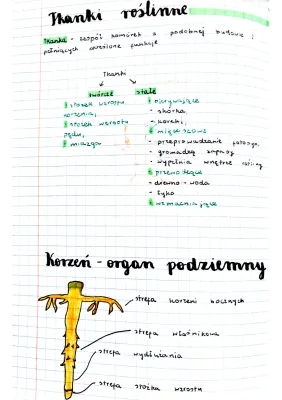 Tkanki roślinne
Tkanka - zespół komórek o podobnej budowie i
pełniących określone funkcje
Tkanki
twórcze stałe
stożek wzrostu
korzenia,
stożek wzrostu
pędu,
miazga
okrywające
- skórka,
- korek,
miękiszowe
- przeprowadzanie
- gromadzą zapasy
- wypełnia wnętrze rośliny
przewodzące
- drewno - woda
- łyko
wzmacniające
Korzeń - organ podziemny
strefa korzeni bocznych
strefa włośnikowa
strefa wydłużania
strefa stożka wzrostu